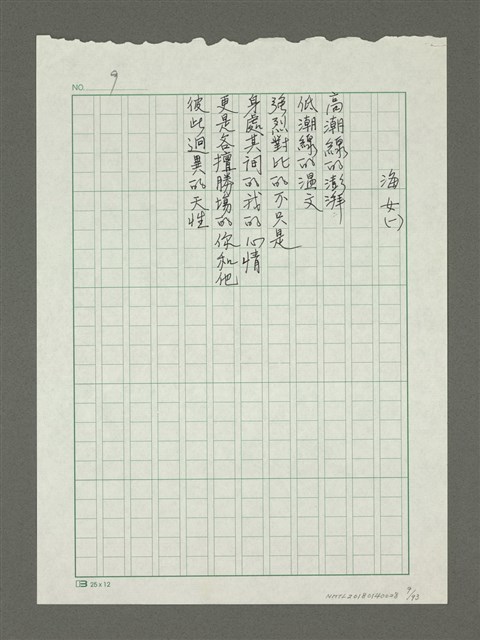 NO. 9
海女(一)
高潮線的澎湃
低潮線的溫文
強烈對比的不只是
身處其間的我的心情
更是各擅勝場的你和他
彼此迥異的天性
25 x 12
NMTL20180140008 9/93